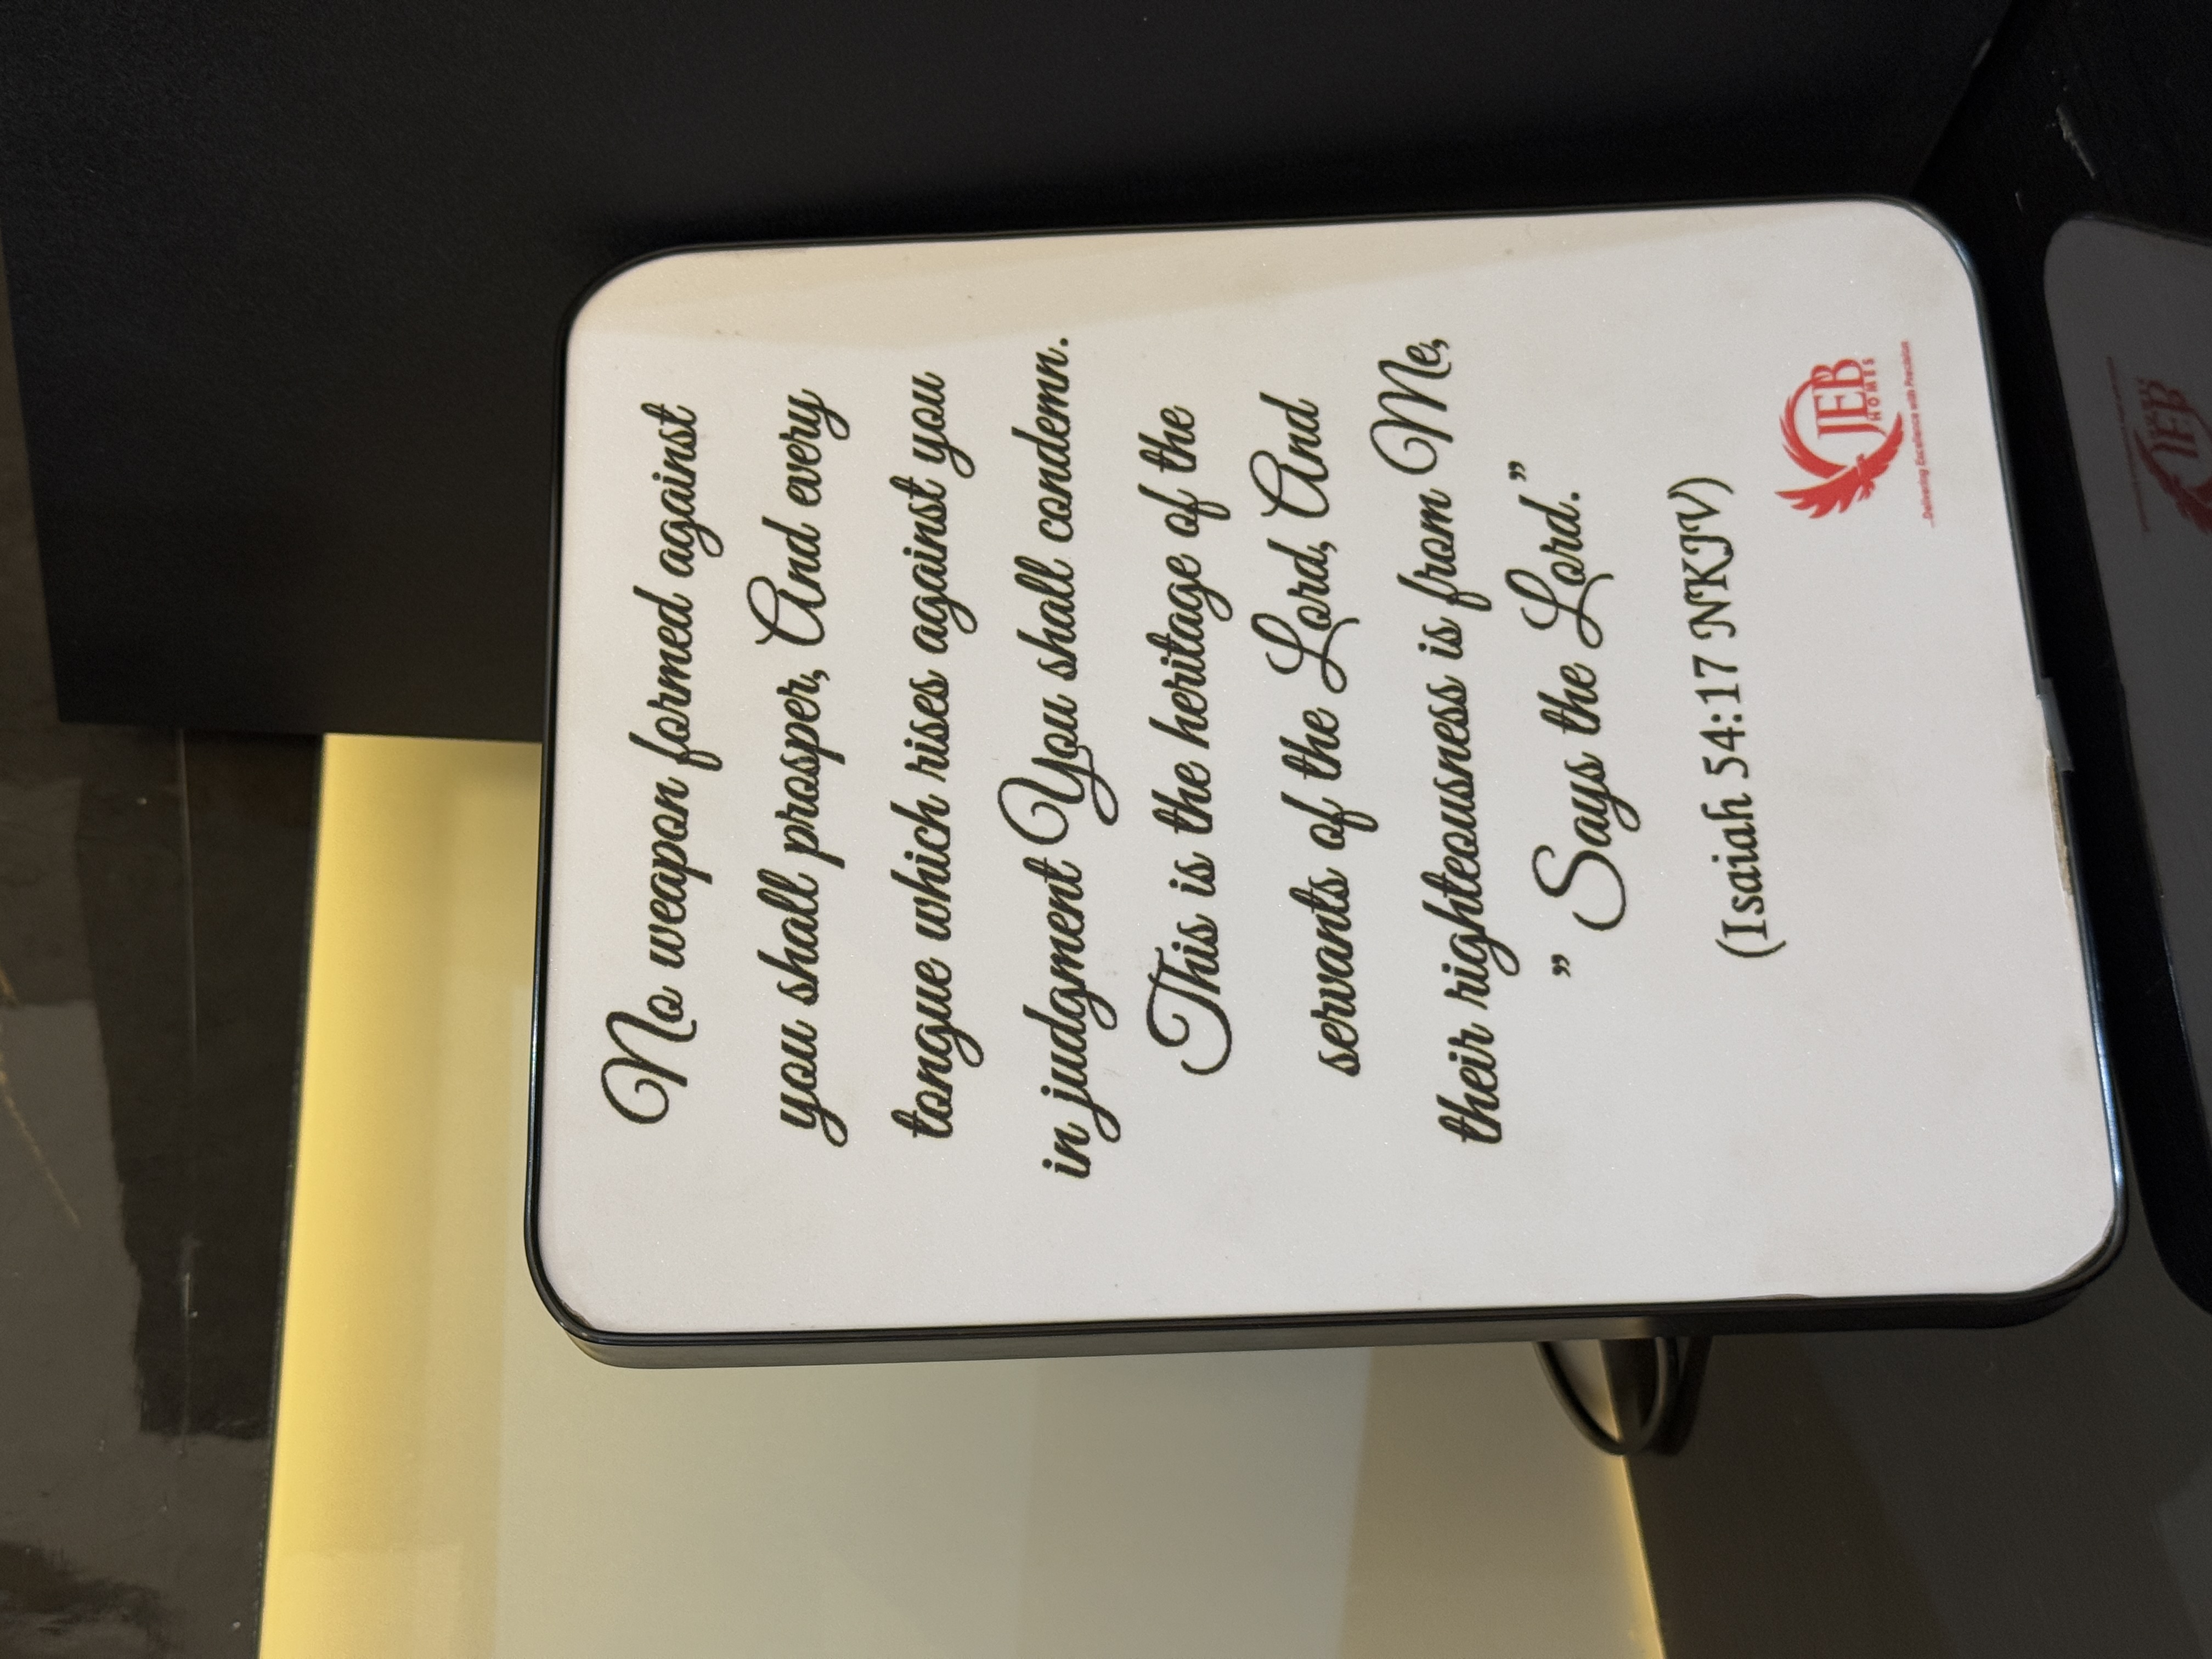 No weapon formed against
you shall prosper, And every
tongue which rises against you
in judgment You shall condemn.
This is the heritage of the
servants of the Lord, And
their righteousness is from Me,
” Says the Lord.”
(Isaiah 54:17 NKJV)
JEB
HOMES
...Delivering Excellence with Precision
JEB